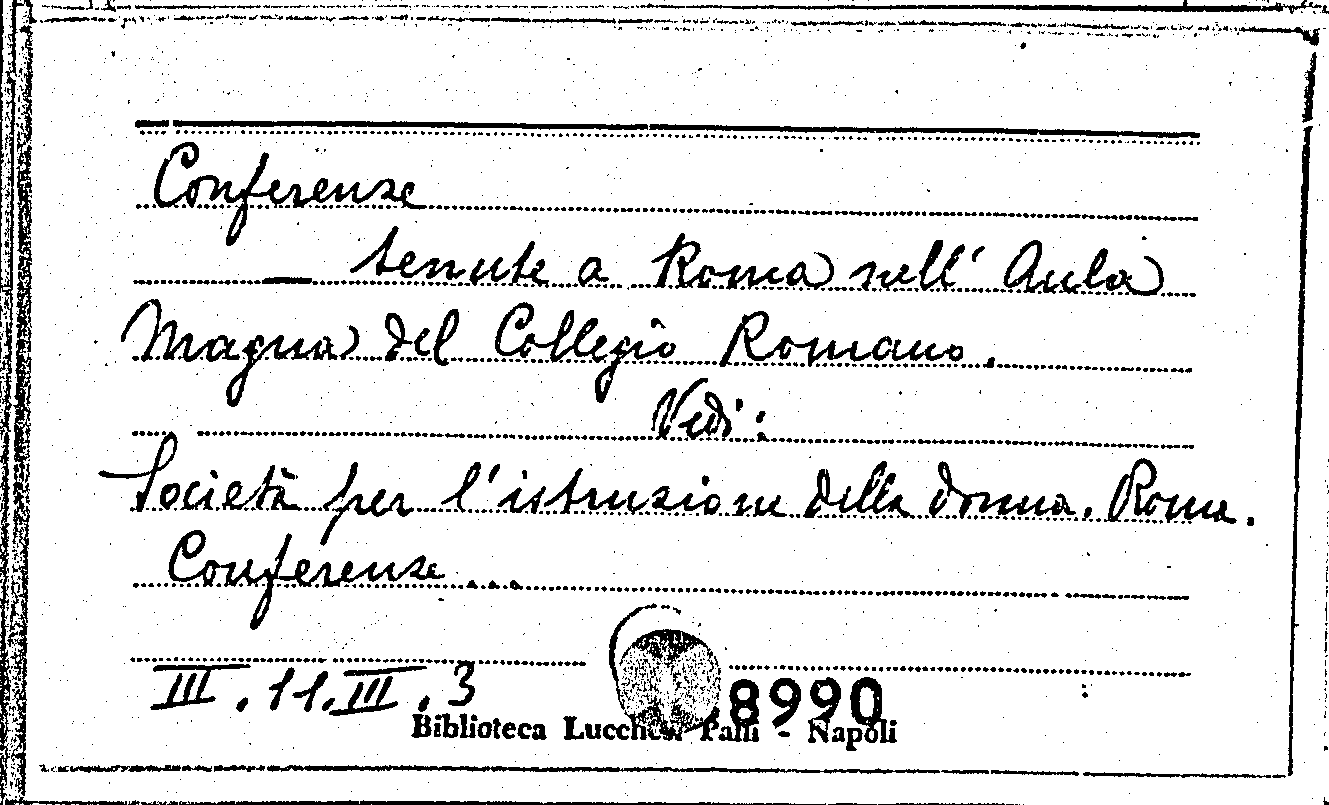 Conferenze
— tenute a Roma nell' Aula
Magna del Collegio Romano.
Vedi:
Società per l'istruzione della donna. Roma.
Conferenze...
III. 11. III. 3
8990
Biblioteca Lucchesi Palli - Napoli